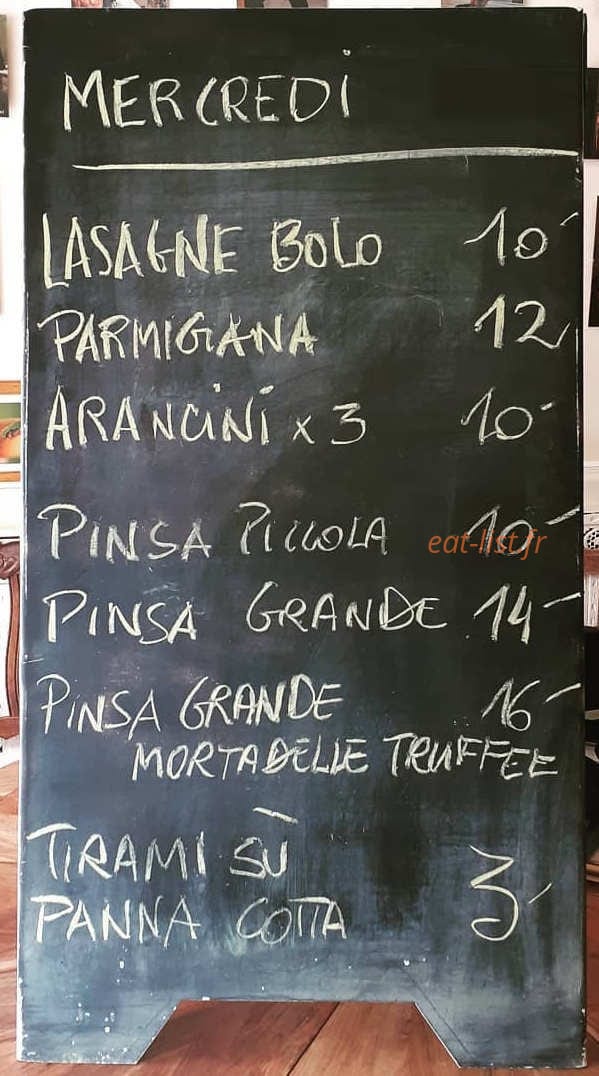 MERCREDI
LASAGNE BOLO 10-
PARMIGIANA 12
ARANCINI x 3 10-
PINSA PICCOLA 10-
eat-list.fr
PINSA GRANDE 14-
PINSA GRANDE 16-
MORTADELLE TRUFFEE
TIRAMI SÙ
PANNA COTTA 3-